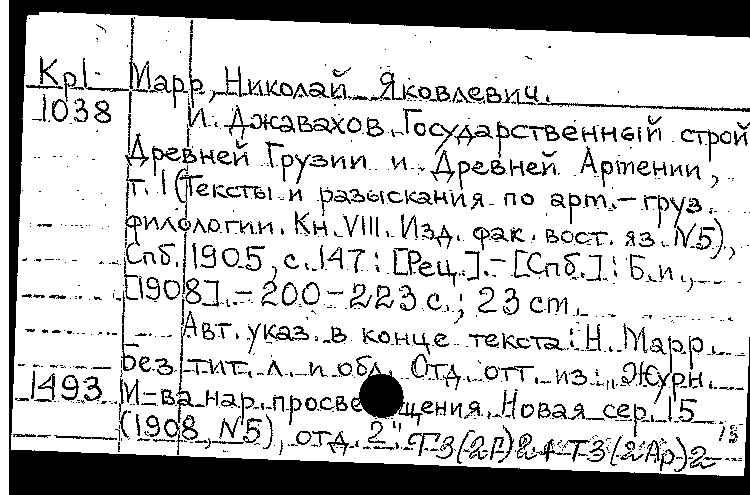 Kpl-
1038
Марр, Николай Яковлевич.
И. Джавахов. Государственный строй
Древней Грузии и Древней Армении,
т. I (Тексты и разыскания по арм.-груз.
филологии. Кн. VIII. Изд. фак. вост. яз. N5),
Спб. 1905, с. 147: [Рец.].-[Спб.]: Б.и.,
[1908].-200-223 с.; 23 cm.
Авт. указ. в конце текста: Н. Марр.
Без тит. л. и обл. Отд. отт. из: „Журн.
1493 И-ва нар. просвещения. Новая сер. 15
(1908, N5), отд. 2". ТЗ(2Г)2+ТЗ(2Ар)2